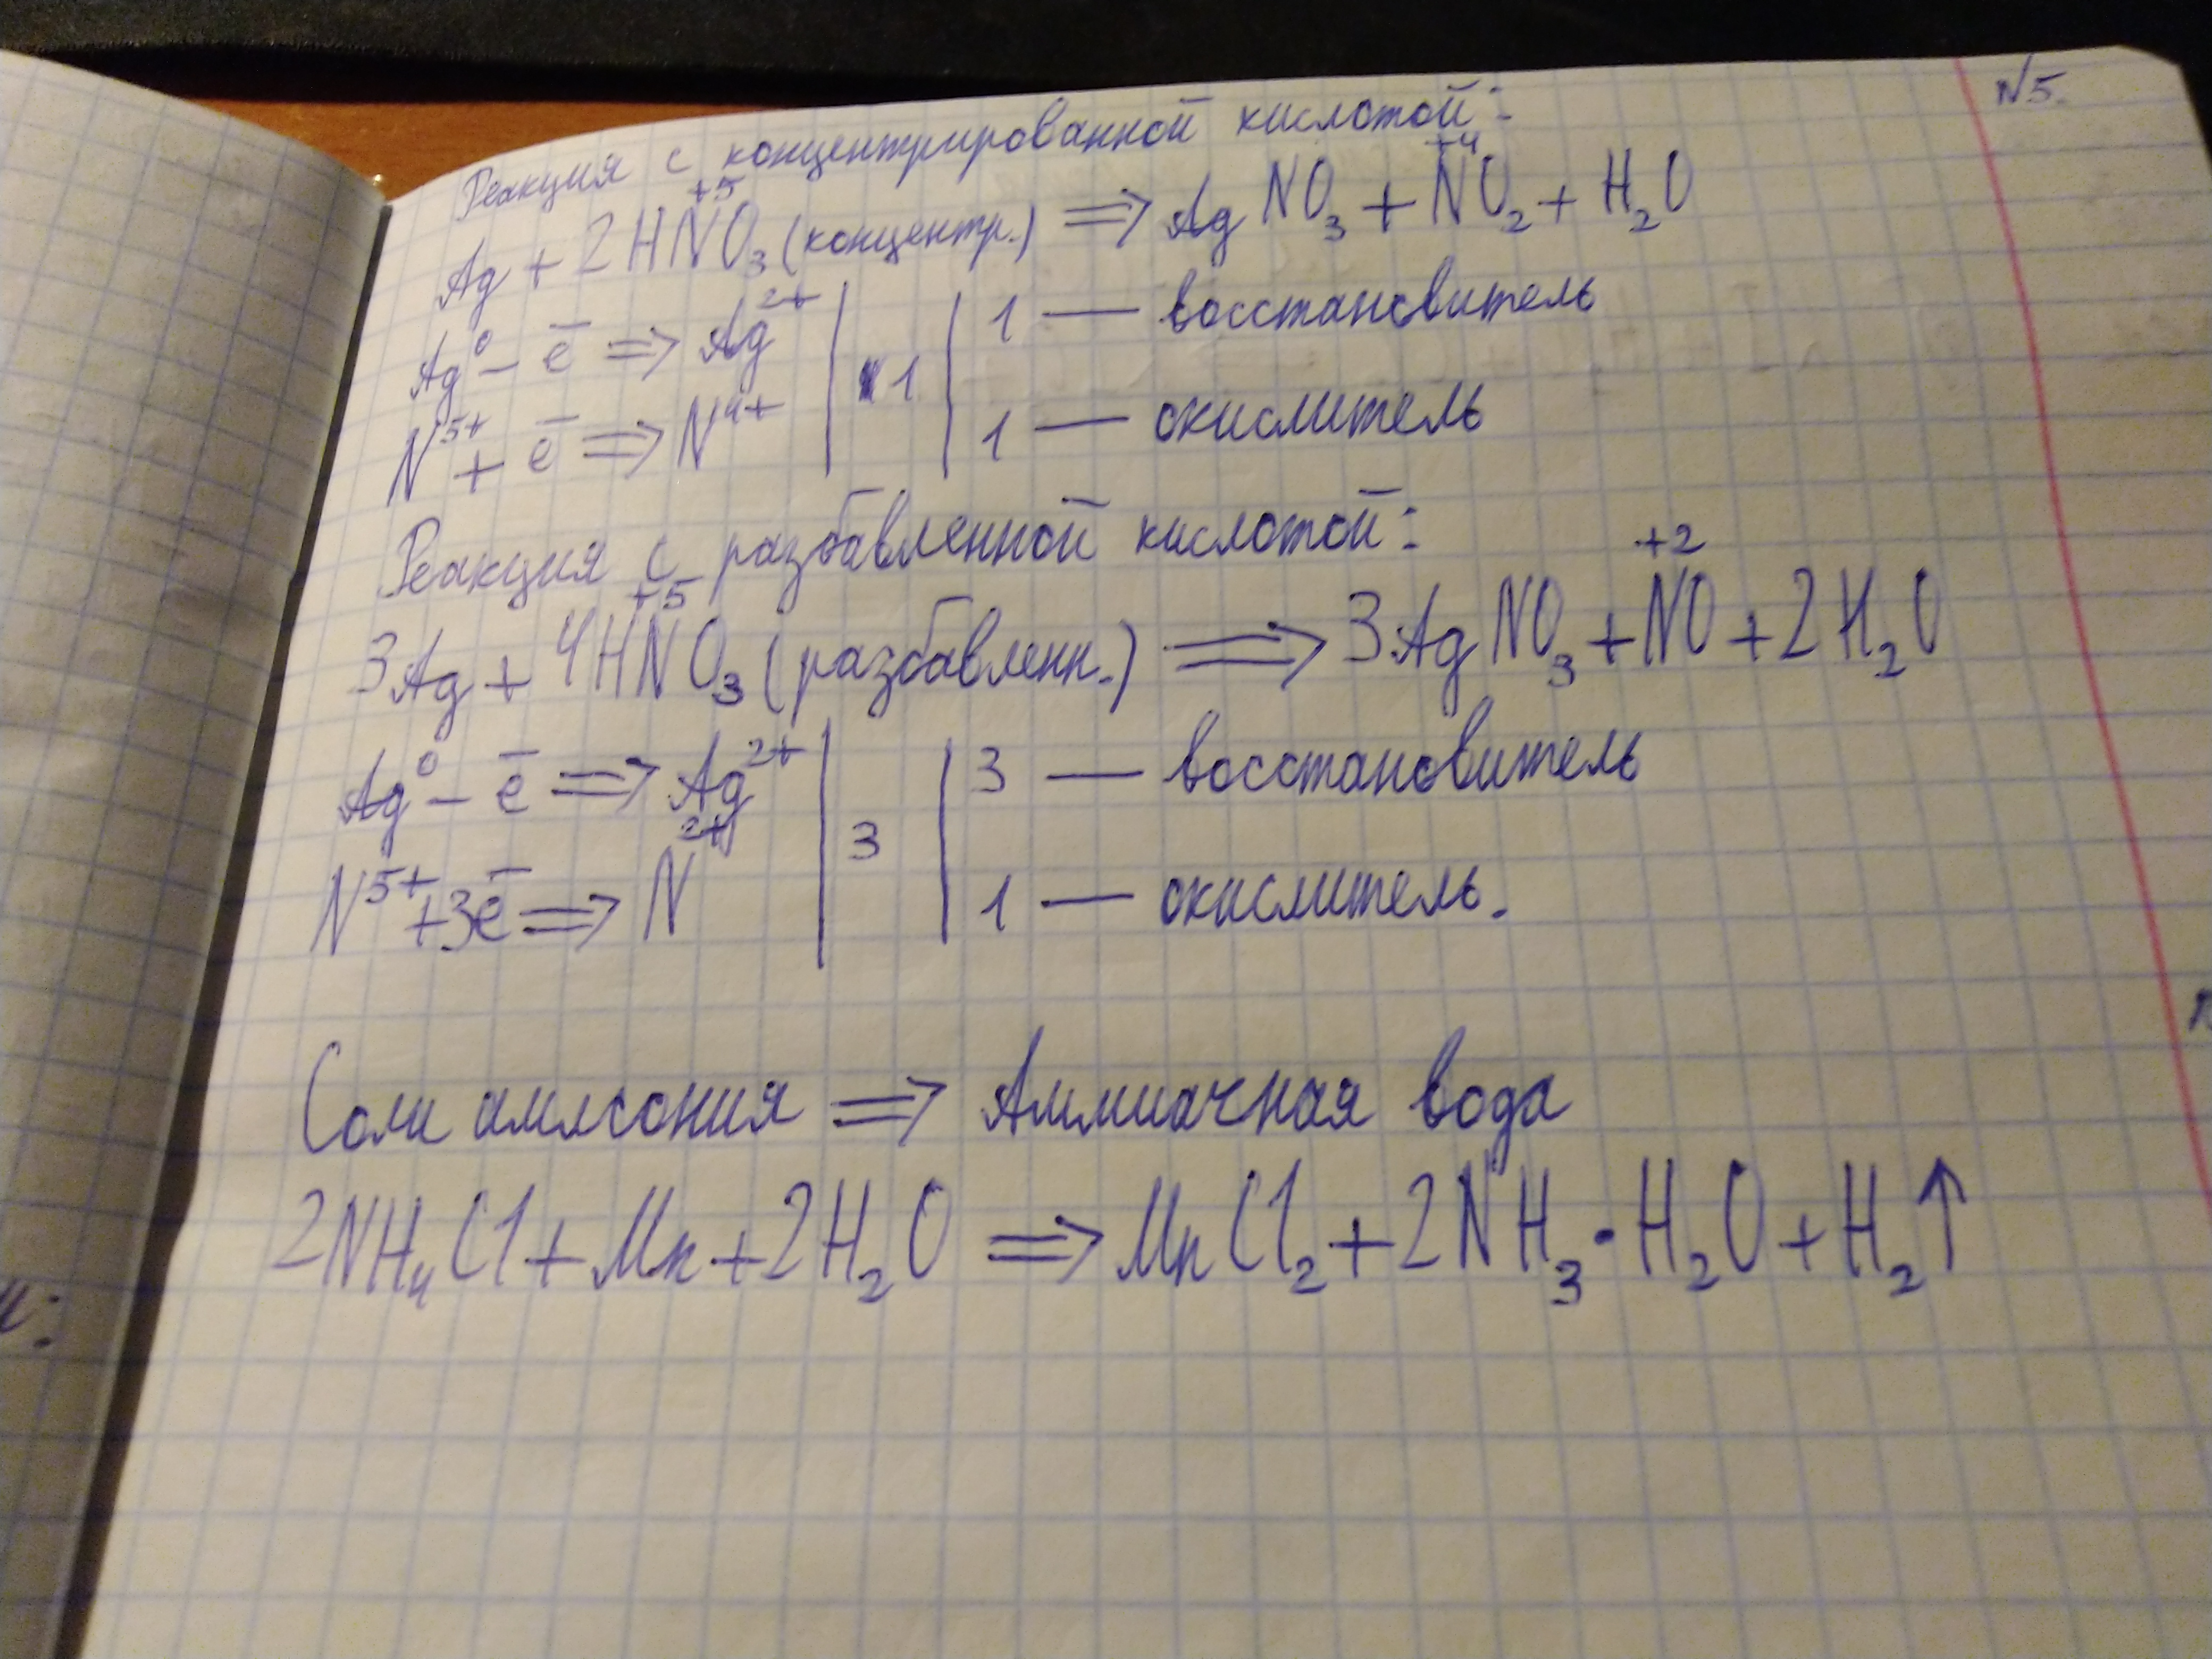 №5.
Реакция с концентрированной кислотой:
+5 +4
Ag + 2HNO₃ (концентр.) ⇒ AgNO₃ + NO₂ + H₂O
Ag⁰ - ē ⇒ Ag²⁺ | 1 | 1 — восстановитель
N⁵⁺ + ē ⇒ N⁴⁺ | | 1 — окислитель
Реакция с разбавленной кислотой:
+5 +2
3Ag + 4HNO₃ (разбавленн.) ⇒ 3AgNO₃ + NO + 2H₂O
Ag⁰ - ē ⇒ Ag²⁺ | 3 | 3 — восстановитель
N⁵⁺ + 3ē ⇒ N²⁺ | | 1 — окислитель.
Соли аммония ⇒ Аммиачная вода
2NH₄Cl + Mn + 2H₂O ⇒ MnCl₂ + 2NH₃·H₂O + H₂↑